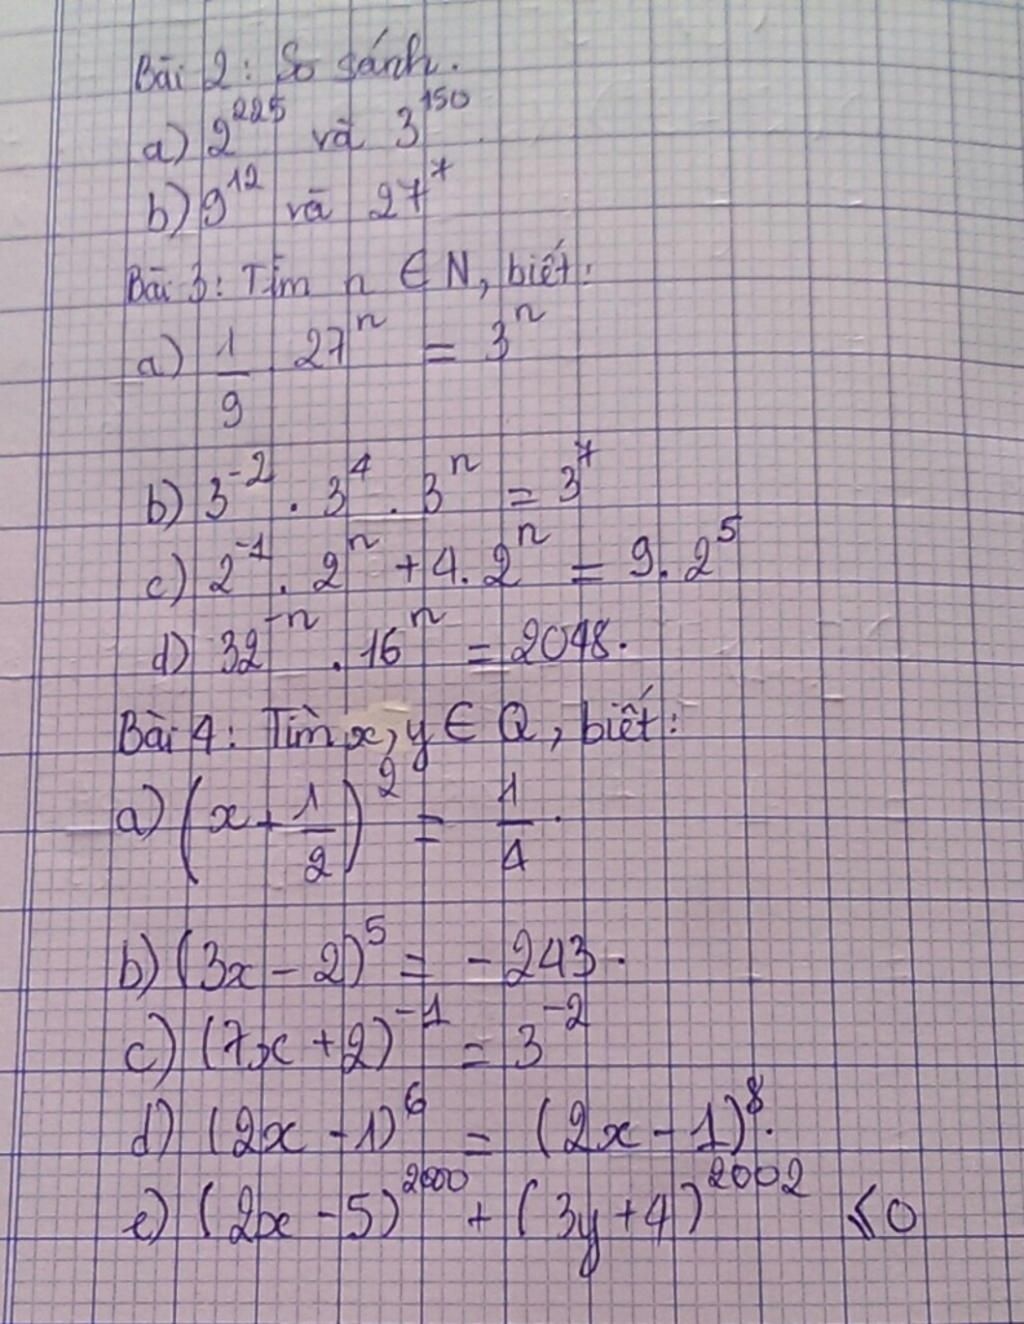 Bài 2: So sánh.
a) 2^225 và 3^150
b) 9^12 và 27^7
Bài 3: Tìm n ∈ N, biết:
a) 1/9 27^n = 3^n
b) 3^-2 . 3^4 . 3^n = 3^7
c) 2^-1 . 2^n + 4. 2^n = 9. 2^5
d) 32^-n . 16^n = 2048.
Bài 4: Tìm x, y ∈ Q, biết:
a) (x + 1/2)^2 = 1/4.
b) (3x - 2)^5 = -243.
c) (7x + 2)^-1 = 3^-2
d) (2x - 1)^6 = (2x - 1)^8.
e) (2x - 5)^2000 + (3y + 4)^2002 ≤ 0